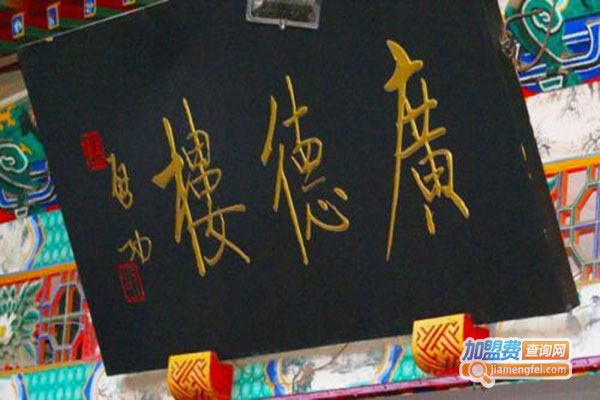 廣德樓
启功
加盟费查询网
jiamengfei.com